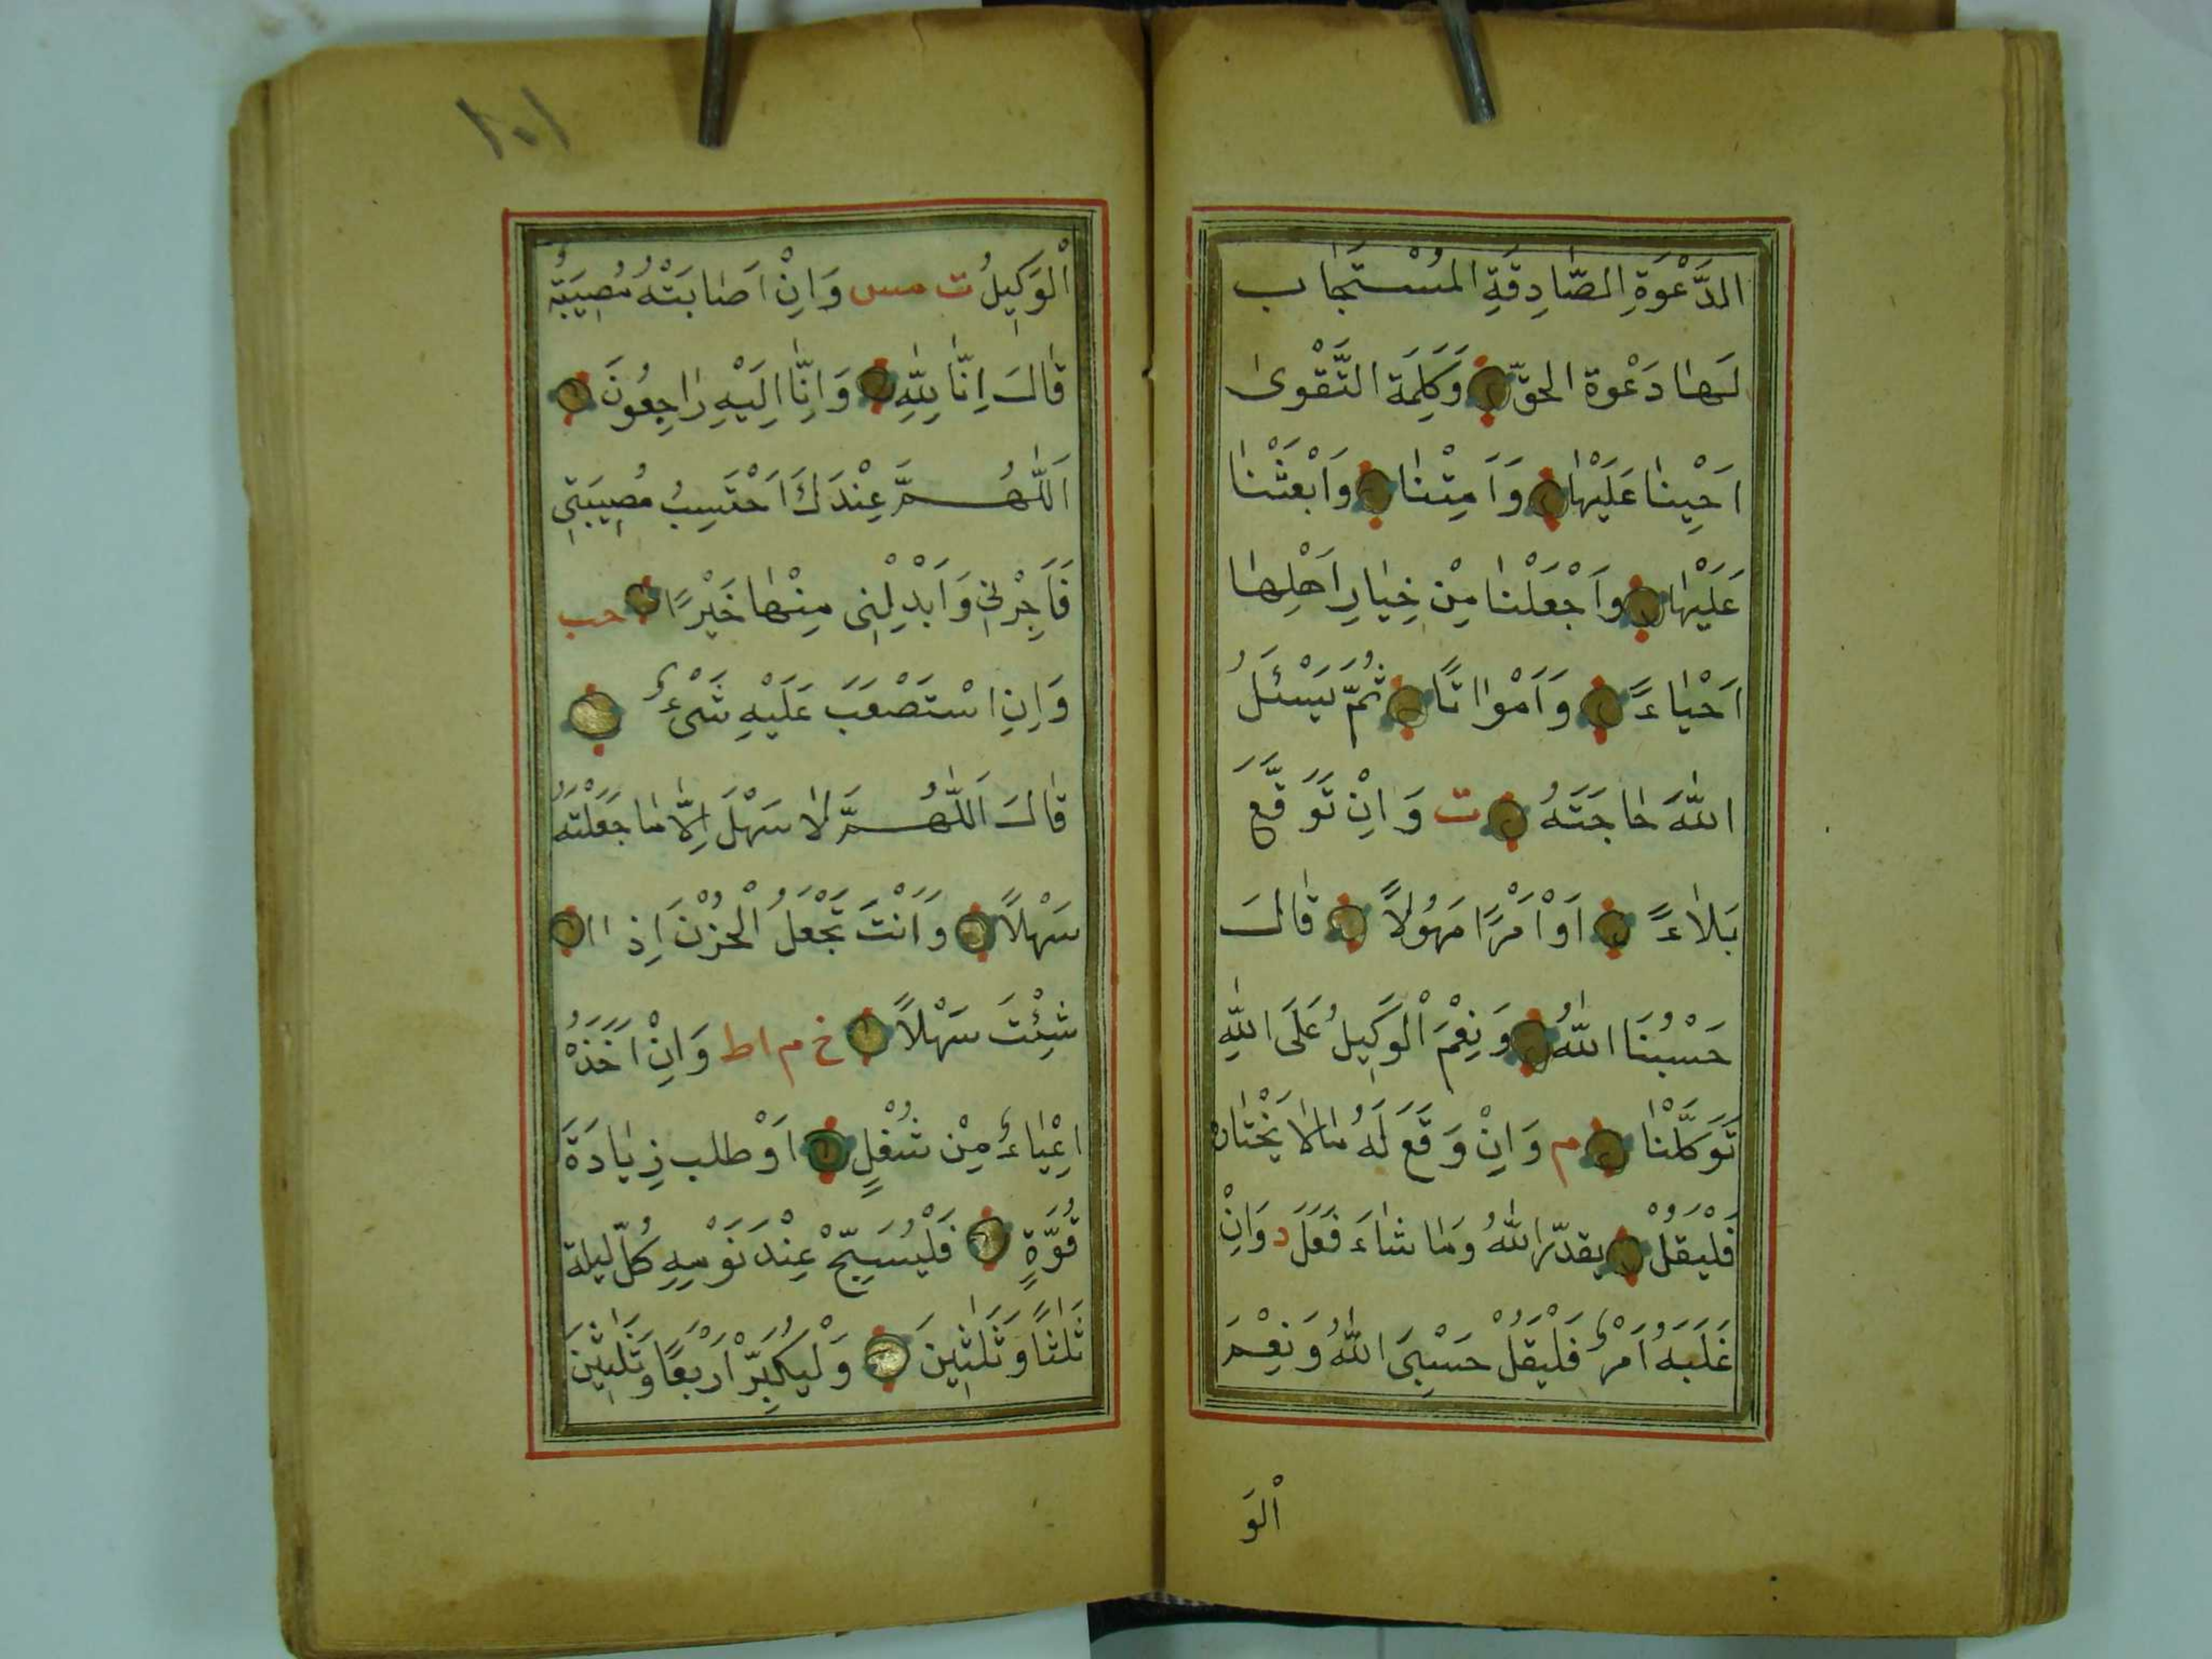 الدَّعْوَةِ الصَّادِقَةِ الْمُسْتَجَابِ
لَهَا دَعْوَةِ الحَقِّ وَكَلِمَةِ التَّقْوٰى
اَحْيِنَا عَلَيْهَا وَاَمِتْنَا وَابْعَثْنَا
عَلَيْهَا وَاجْعَلْنَا مِنْ خِيَارِ اَهْلِهَا
اَحْيَاءً وَاَمْوَاتًا ثُمَّ يَسْئَلُ
اللّٰهَ حَاجَتَهُ ت وَاِنْ تَوَقَّعَ
بَلَاءً اَوْ اَمْرًا مَهُولًا قَالَ
حَسْبُنَا اللّٰهُ وَنِعْمَ الْوَكِيلُ عَلَى اللّٰهِ
تَوَكَّلْنَا م وَاِنْ وَقَعَ لَهُ مَا لَا يَخْتَارُ
فَلْيَقُلْ يقدّر اللّٰهُ وَمَا شَاءَ فَعَلَ د وَاِنْ
غَلَبَهُ اَمْرٌ فَلْيَقُلْ حَسْبِيَ اللّٰهُ وَنِعْمَ
الْوَ
١٠١
الْوَكِيلُ ت مس وَاِنْ اَصَابَتْهُ مُصِيبَةٌ
قَالَ اِنَّا لِلّٰهِ وَاِنَّا اِلَيْهِ رَاجِعُونَ
اَللّٰهُمَّ عِنْدَكَ اَحْتَسِبُ مُصِيبَتِي
فَاَجِرْنِي وَاَبْدِلْنِي مِنْهَا خَيْرًا حب
وَاِنِ اسْتَصْعَبَ عَلَيْهِ شَيْءٌ
قَالَ اَللّٰهُمَّ لَا سَهْلَ اِلَّا مَا جَعَلْتَهُ
سَهْلًا وَاَنْتَ تَجْعَلُ الْحُزْنَ اِذَا
شِئْتَ سَهْلًا خ م اط وَاِنْ اَخَذَهُ
اِعْيَاءٌ مِنْ شُغْلٍ اَوْ طلب زِيَادَةَ
قُوَّةٍ فَلْيُسَبِّحْ عِنْدَ نَوْمِهِ كُلّ ليلة
ثَلٰثًا وَثَلٰثِينَ وَلْيُكَبِّرْ اَرْبَعًا وَثَلٰثِينَ